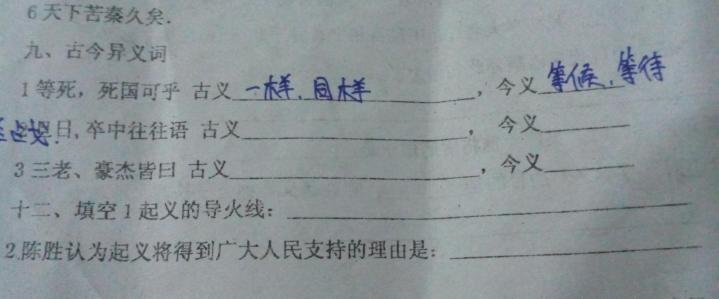 6天下苦秦久矣.
九、古今异义词
1等死，死国可乎 古义 一样、同样 ，今义 等候、等待
日,卒中往往语 古义 ，今义
3三老、豪杰皆曰 古义 ，今义
十二、填空1起义的导火线：
2.陈胜认为起义将得到广大人民支持的理由是：